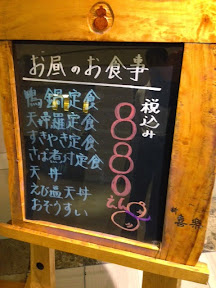 お昼のお食事
鴨鍋定食
天ぷら定食
すきやき定食
さば煮付定食
天丼
えび温天丼
おぞうすい
税込み
880
えん
喜楽